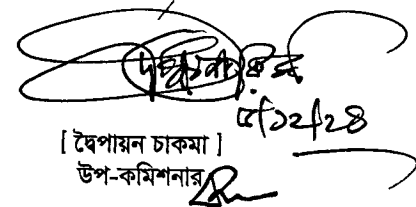 ৫/১২/২৪
[ দ্বৈপায়ন চাকমা ]
উপ-কমিশনার